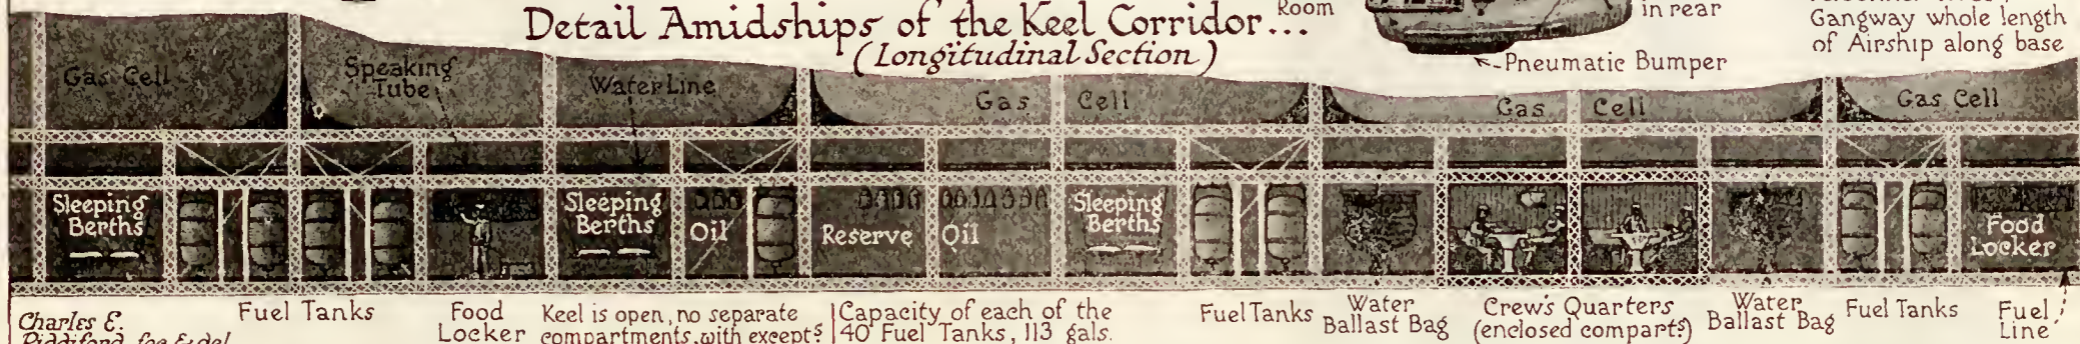 Detail Amidships of the Keel Corridor...
(Longitudinal Section)
Room
in rear
Pneumatic Bumper
Gangway whole length
of Airship along base
Gas Cell
Speaking
Tube
Water Line
Gas Cell
Gas Cell
Gas Cell
Sleeping
Berths
Sleeping
Berths
Oil
Reserve Oil
Sleeping
Berths
Food
Locker
Charles E.
Riddiford, fec & del
Fuel Tanks
Food
Locker
Keel is open, no separate
compartments, with excepts
Capacity of each of the
40 Fuel Tanks, 113 gals.
Fuel Tanks
Water
Ballast Bag
Crew's Quarters
(enclosed comparts)
Water
Ballast Bag
Fuel Tanks
Fuel
Line